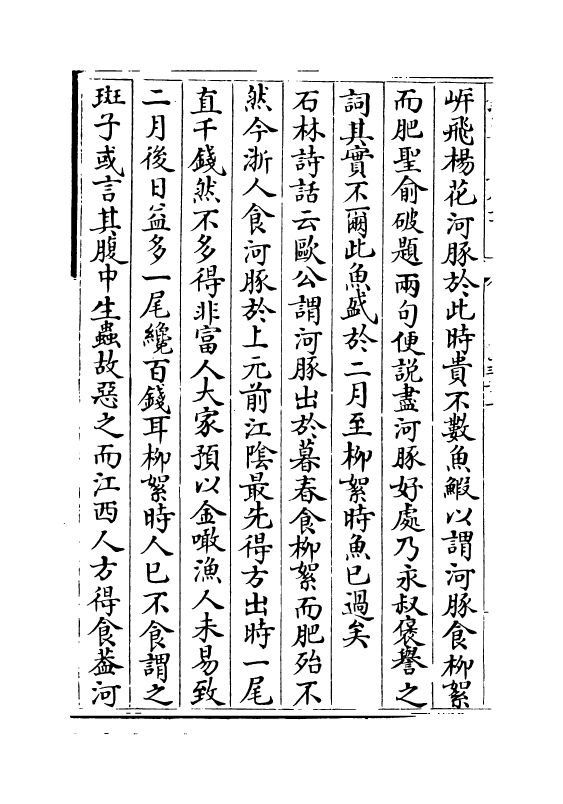 岸飛楊花河豚於此時貴不數魚鰕以謂河豚食柳絮
而肥聖俞破題兩句便説盡河豚好處乃永叔褒譽之
詞其實不爾此魚盛於二月至柳絮時魚已過矣
石林詩話云歐公謂河豚出於暮春食柳絮而肥殆不
然今浙人食河豚於上元前江陰最先得方出時一尾
直千錢然不多得非富人大家預以金噉漁人未易致
二月後日益多一尾纔百錢耳柳絮時人已不食謂之
斑子或言其腹中生蟲故惡之而江西人方得食葢河